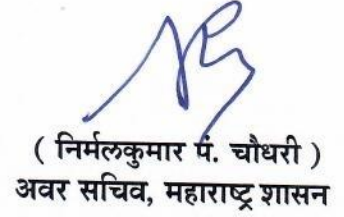 ( निर्मलकुमार पं. चौधरी )
अवर सचिव, महाराष्ट्र शासन